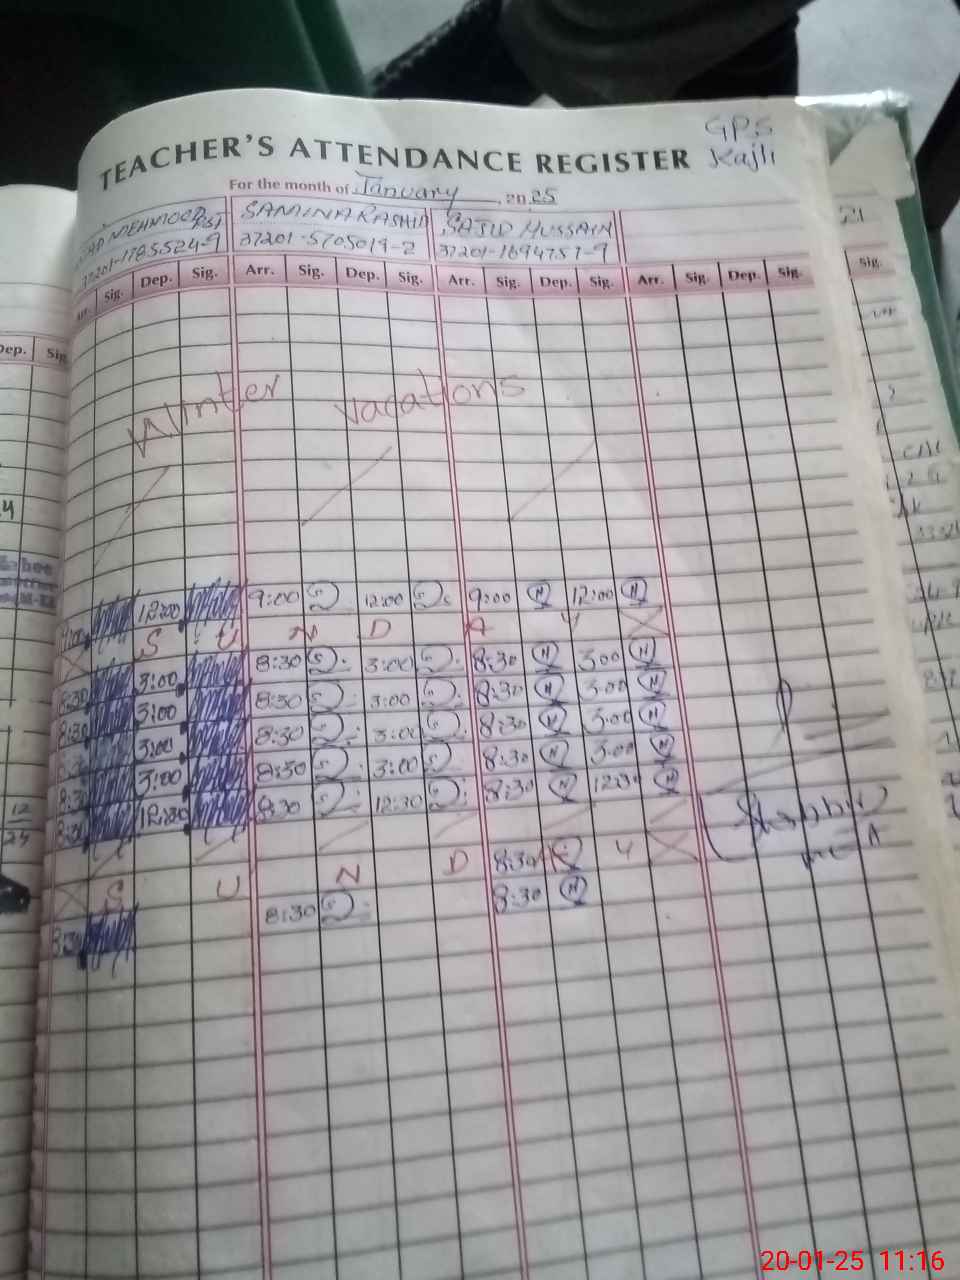 GPS
Kajli
TEACHER'S ATTENDANCE REGISTER
For the month of January, 2025
MEHMOOD PST SAMINA RASHID SAJID HUSSAIN
37201-1785524-9 37201-5705019-2 37201-1694757-9
Arr. Sig. Dep. Sig. Arr. Sig. Dep. Sig. Arr. Sig. Dep. Sig. Arr. Sig. Dep. Sig.
Winter vacations
9:00 12:00 9:00 12:00 9:00 12:00
S U N D A Y
8:30 3:00 8:30 3:00 8:30 3:00
8:30 3:00 8:30 3:00 8:30 3:00
8:30 3:00 8:30 3:00 8:30 3:00
8:30 3:00 8:30 3:00 8:30 3:00
8:30 12:30 8:30 12:30 8:30 12:30
S U N D 8:30 Y
8:30 8:30 8:30
Dep. Sig.
12
21
Sig.
20-01-25 11:16